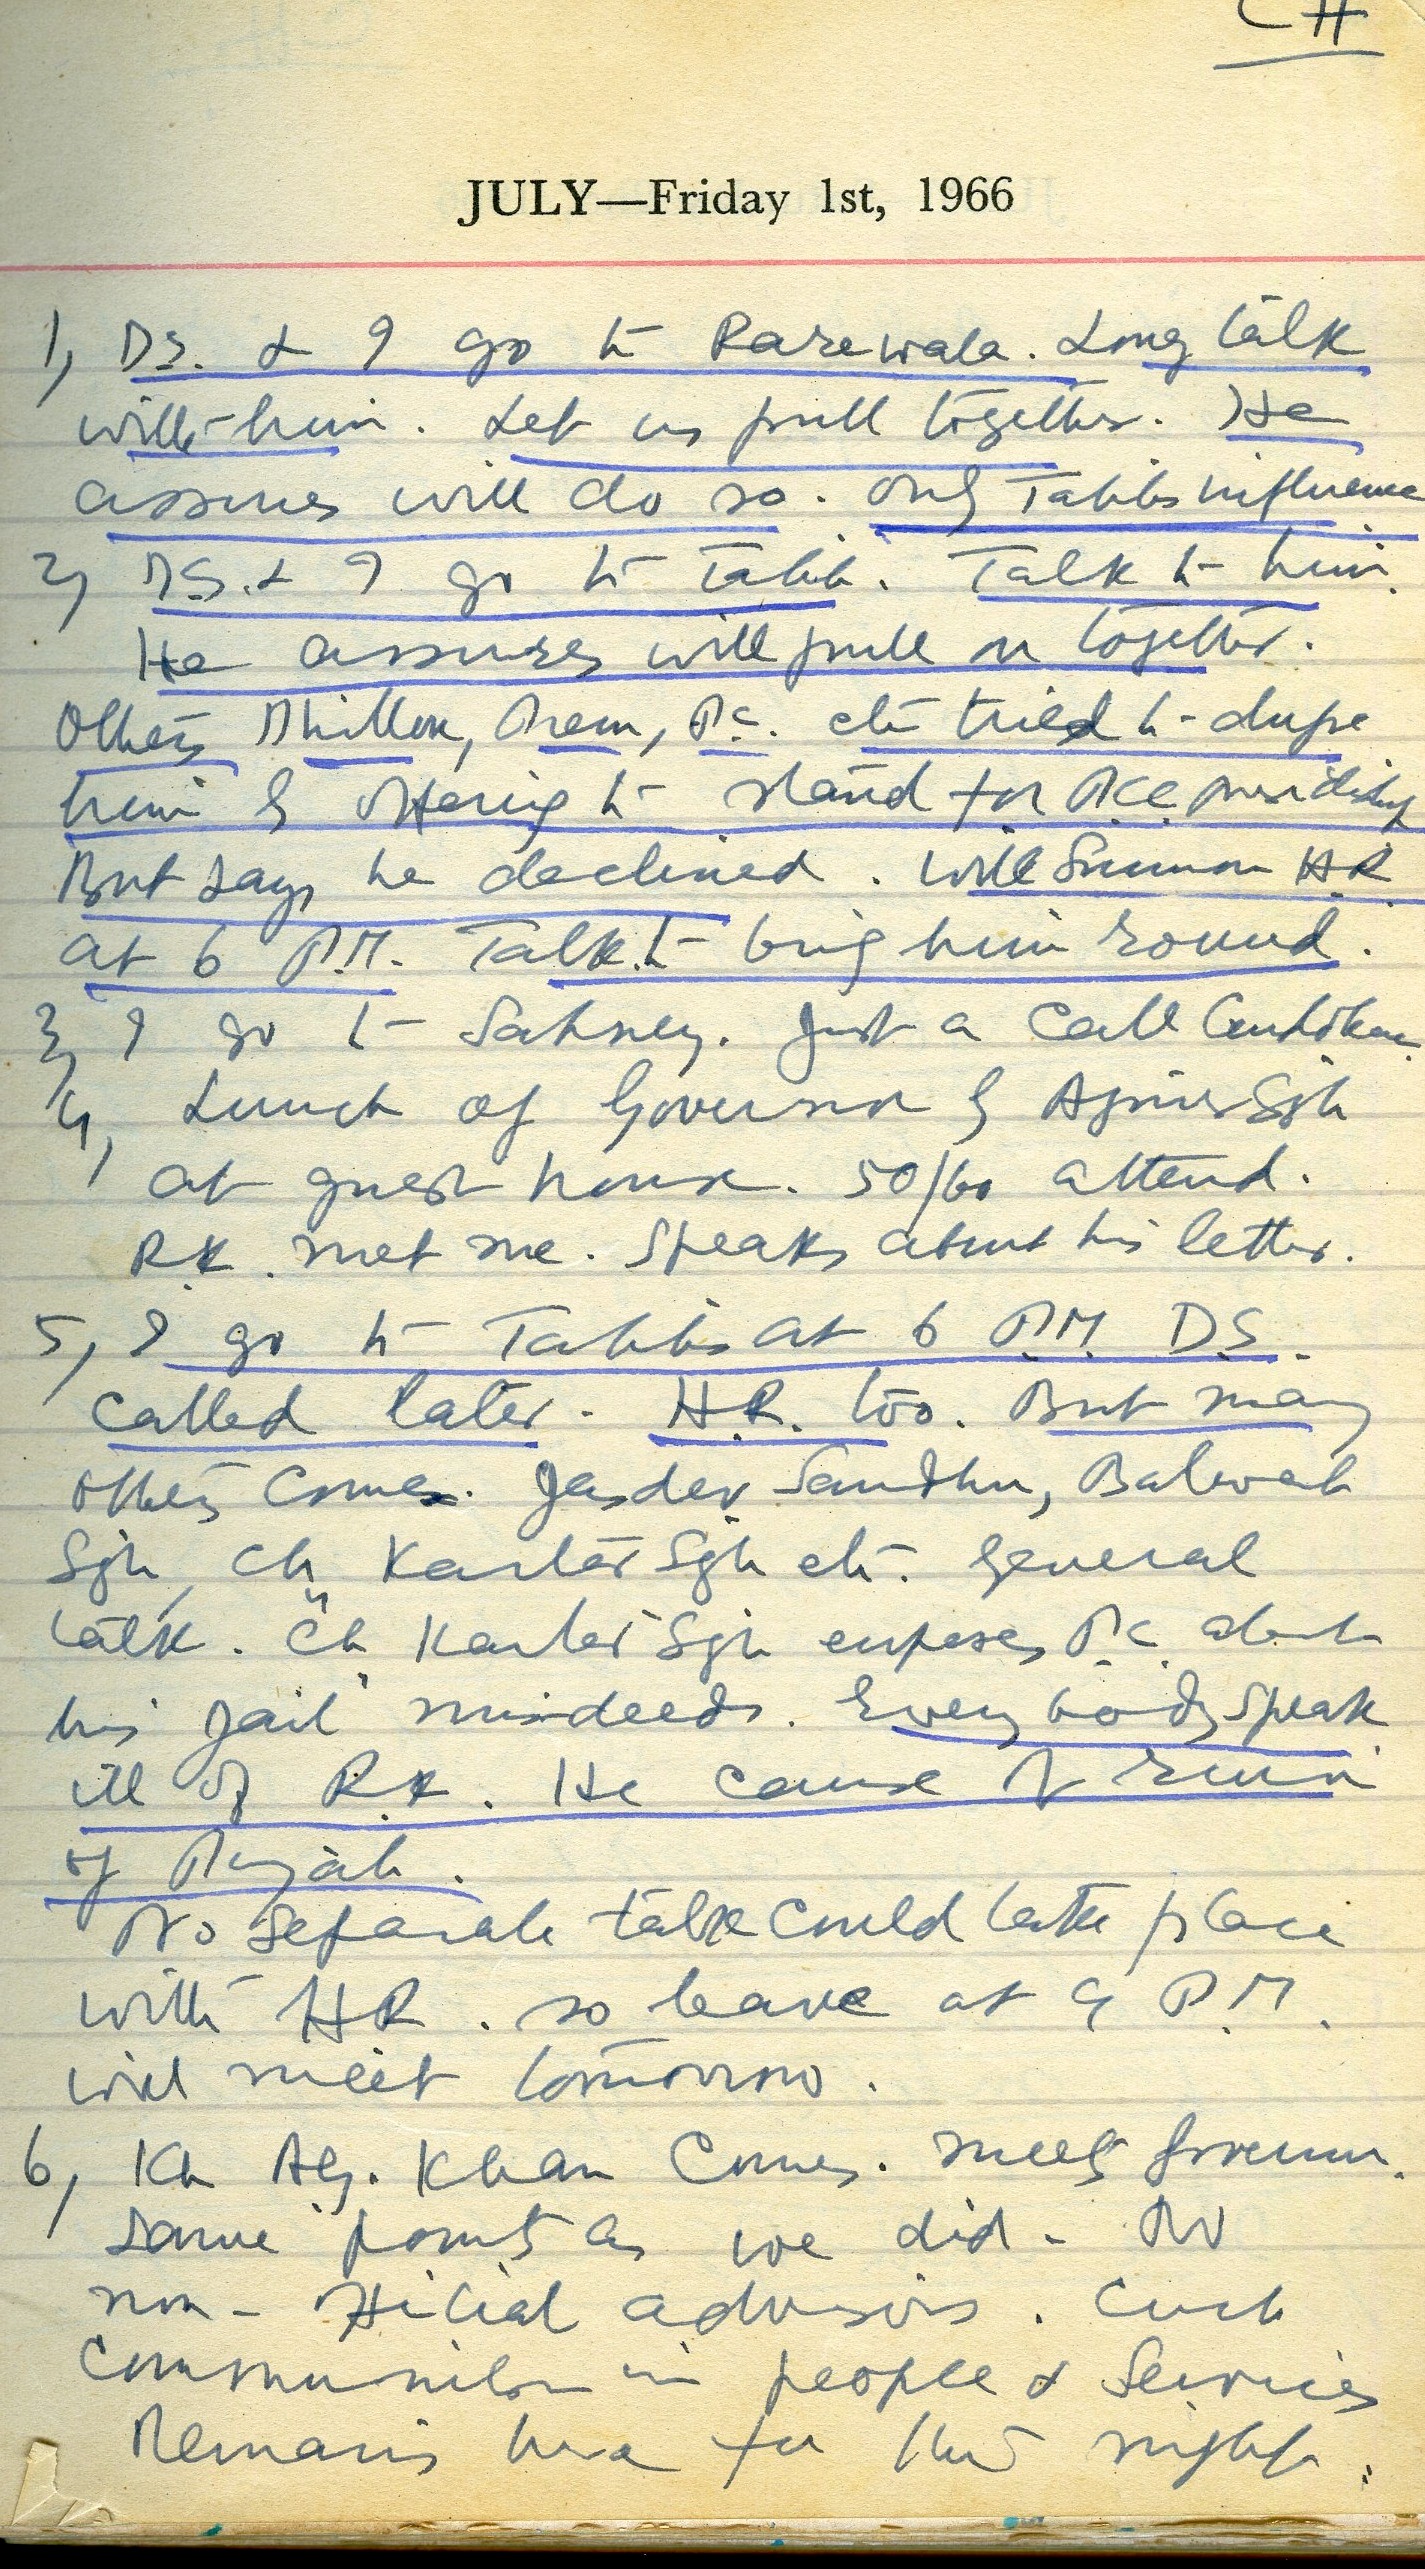 CH
JULY—Friday 1st, 1966
1, D.S. & I go to Rarewala. Long talk
with him. Let us pull together. He
assures will do so. Only Tabbs influence
2, D.S. & I go to Tabb. Talk to him.
He assures will pull on together.
Others Dhillon, Prem, P.C. etc tried to dupe
him by offering to stand for PCC
But says he declined. Will Summon H.R.
at 6 P.M. Talk to bring him round.
3, I go to Sahney. Just a call
4, Lunch of Governor by Ajmer Sgh
at guest house. 50/60 attend.
R.K. met me. Speaks about his letter.
5, I go to Tabbs at 6 P.M. D.S.
called later. H.R. too. But many
others come. Jasdev Sandhu, Balwant
Sgh, Ch Kartar Sgh etc. General
talk. Ch Kartar Sgh exposes P.C. about
his jail misdeeds. Every body speak
ill of R.K. He cause of ruin
of Punjab.
No separate talk could take place
with HR. so leave at 9 P.M.
will meet tomorrow.
6, Kh Khan comes. meets Governor.
Same points as we did - No
non-official advisors. Curb
communalism in people & Services
Remains here for the night.